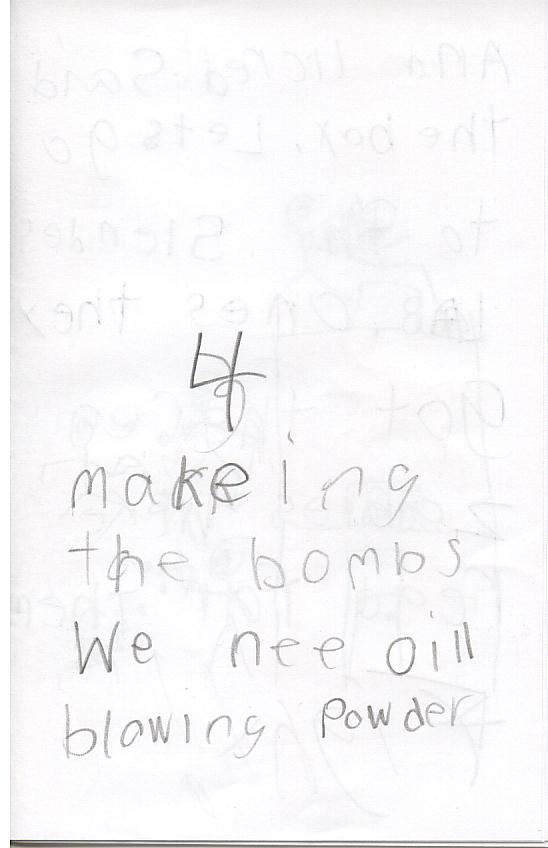 4
makeing
the bombs
We nee oill
blowing powder